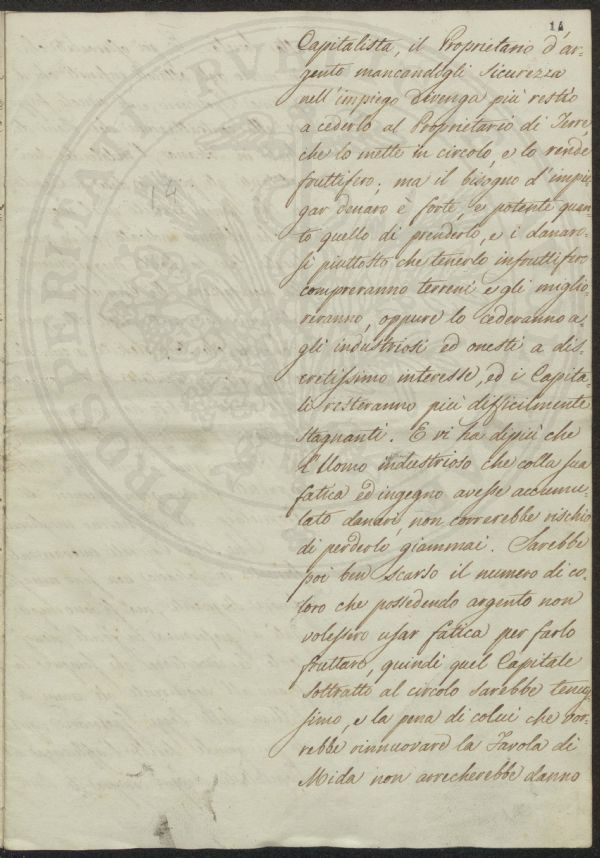 14
Capitalista, il Proprietario d'ar-
gento mancandogli sicurezza
nell'impiego divenga più restio
a cederlo al Proprietario di Terre,
che lo mette in circolo, e lo rende
fruttifero; ma il bisogno d'impie-
gar denaro è forte, e potente quan-
to quello di prenderlo, e i danaro-
si piuttosto che tenerlo infruttifero
compreranno terreni e gli miglio-
reranno, oppure lo cederanno a-
gli industriosi ed onesti a dis-
cretissimo interesse, ed i Capita-
li resteranno più difficilmente
stagnanti. E vi ha dipiù che
l'Uomo industrioso che colla sua
fatica ed ingegno avesse accumu-
lato danari, non correrebbe rischio
di perderlo giammai. Sarebbe
poi ben scarso il numero di co-
loro che possedendo argento non
volessero usar fatica per farlo
fruttare, quindi quel Capitale
sottratto al circolo sarebbe tenuis-
simo, e la pena di colui che vor-
rebbe rinnuovare la Favola di
Mida non arrecherebbe danno
14
PROSPERITATI PVBLIC